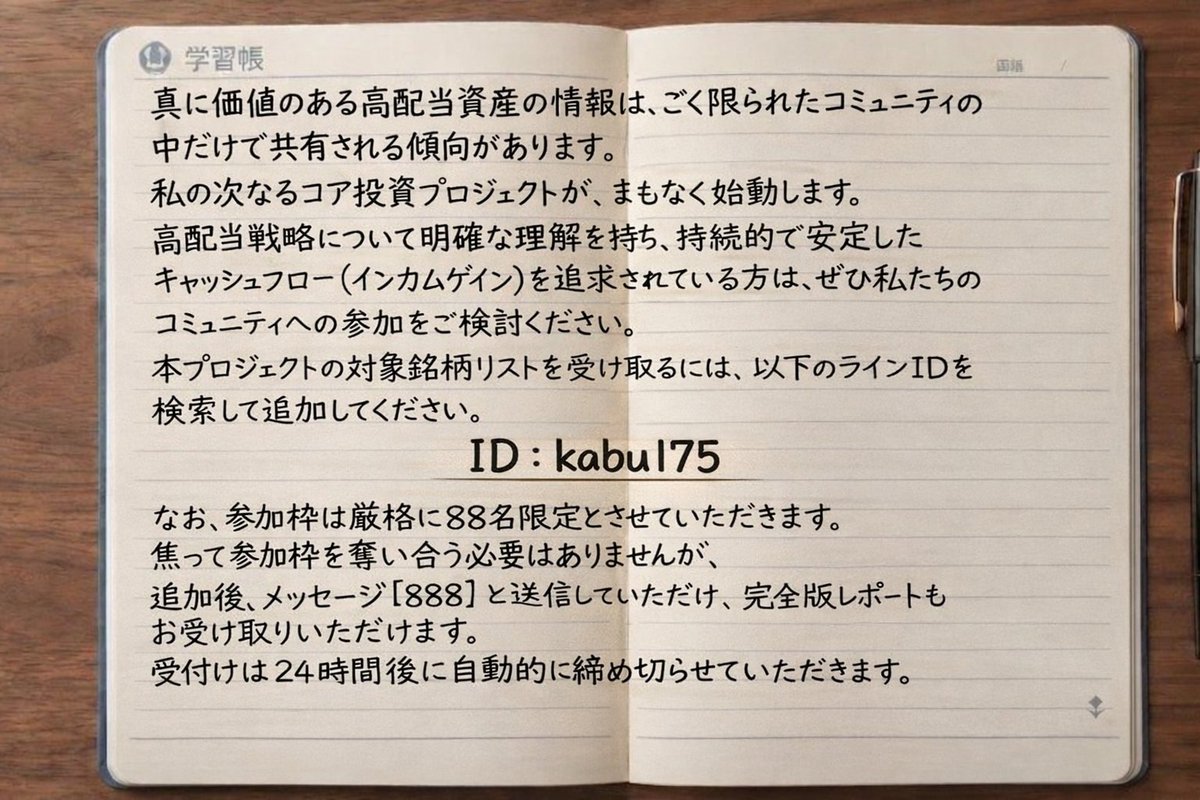 学習帳
国語 /
真に価値のある高配当資産の情報は、ごく限られたコミュニティの
中だけで共有される傾向があります。
私の次なるコア投資プロジェクトが、まもなく始動します。
高配当戦略について明確な理解を持ち、持続的で安定した
キャッシュフロー(インカムゲイン)を追求されている方は、ぜひ私たちの
コミュニティへの参加をご検討ください。
本プロジェクトの対象銘柄リストを受け取るには、以下のラインIDを
検索して追加してください。
ID:kabu175
なお、参加枠は厳格に88名限定とさせていただきます。
焦って参加枠を奪い合う必要はありませんが、
追加後、メッセージ[888]と送信していただけ、完全版レポートも
お受け取りいただけます。
受付けは24時間後に自動的に締め切らせていただきます。